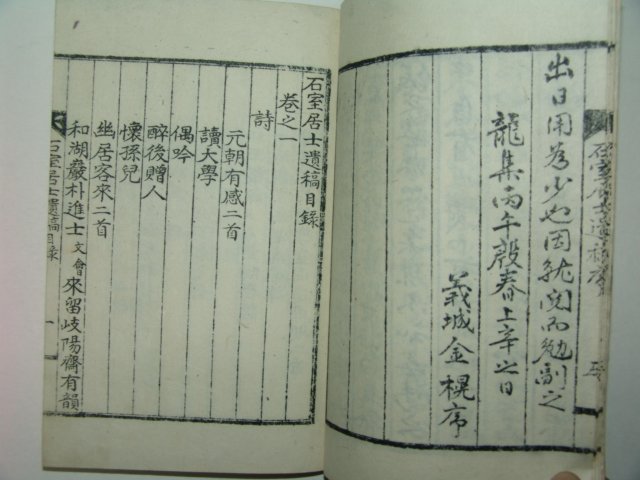 出日用爲少也因就閱而勉副之
龍集丙午殷春上辛之日
義城金榥序
石室居士遺稿序
石室居士遺稿目錄
卷之一
詩
元朝有感二首
讀大學
偶吟
醉後贈人
懷孫兒
幽居客來二首
和湖巖朴進士文會來留岐陽齋有韻
石室居士遺稿目錄
一